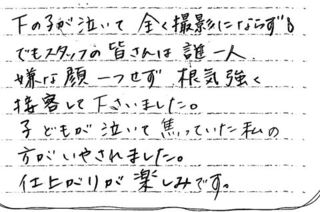 下の子が泣いて 全く撮影にならず
でもスタッフの皆さんは 誰一人
嫌な顔一つせず 根気強く
接客して下さいました。
子どもが泣いて 焦っていた私の
方がいやされました。
仕上がりが楽しみです。